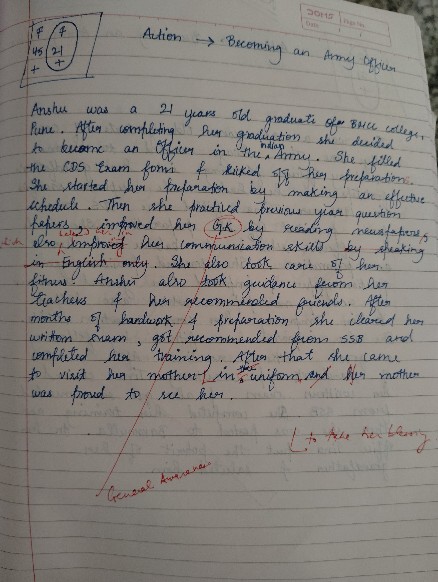 F F
45 21
+ +
Action → Becoming an Army Officer
Anshu was a 21 years old graduate of BMCC college,
Pune. After completing her graduation she decided
to become an Officer in the Indian Army. She filled
the CDS Exam form & kicked off her preparation.
She started her preparation by making an effective
schedule. Then she practiced previous year question
papers, improved her GK by reading newspapers,
also improved her communication skills by speaking
in English only. She also took care of her
fitness. Anshu also took guidance from her
teachers & her recommended friends. After
months of hardwork & preparation she cleared her
written exam, got recommended from SSB and
completed her training. After that she came
to visit her mother in the uniform and her mother
was proud to see her.
to take her blessing
General Awareness